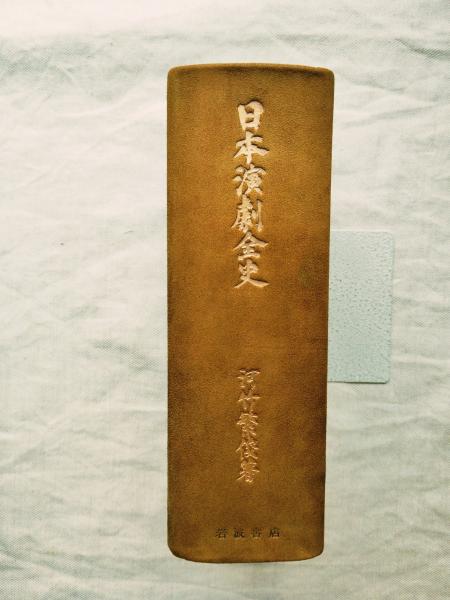 日本演劇全史
河竹繁俊著
岩波書店